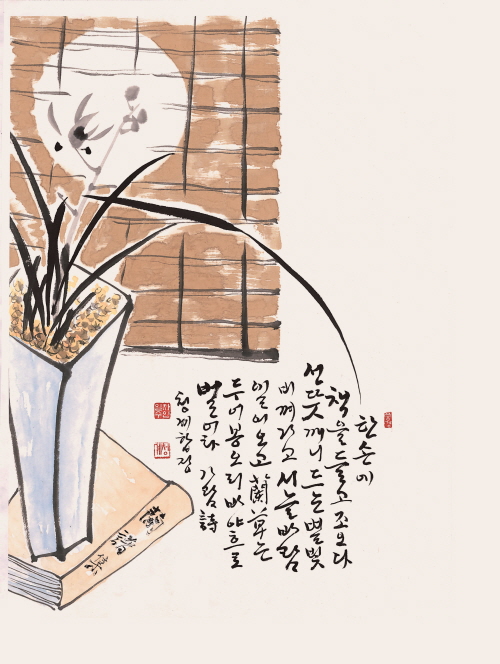 한손에
책을 들고 조오다
선뜻 깨니 드는 별빛
비껴가고 서늘바람
일어오고 蘭草는
두어 봉오리 바야흐로
벌어라 가람 詩